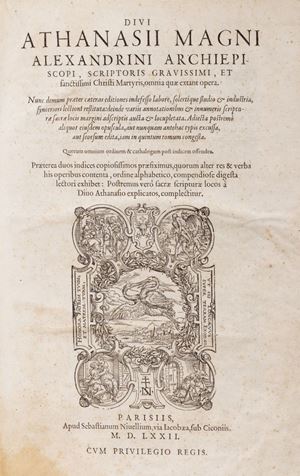 DIVI
ATHANASII MAGNI
ALEXANDRINI ARCHIEPI-
SCOPI, SCRIPTORIS GRAVISSIMI, ET
sanctissimi Christi Martyris, omnia quæ extant opera.
Nunc demum præter cæteras editiones indefesso labore, solertique studio & industria,
synceriori lectioni restituta: deinde variis annotationibus & innumeris scriptu-
ræ sacræ locis margini adscriptis aucta & locupletata. Adiecta postremò
aliquot eiusdem opuscula, aut nunquam antehac typis excussa,
aut seorsum edita, iam in quintum tomum congesta.
Quorum omnium ordinem & cathalogum post indicem offendes.
Præterea duos indices copiosissimos præfiximus, quorum alter res & verba
his operibus contenta, ordine alphabetico, compendiose digesta
lectori exhibet: Postremus verò sacræ scripturæ locos à
Diuo Athanasio explicatos, complectitur.
PARISIIS,
Apud Sebastianum Niuellium, via Iacobæa, sub Ciconiis.
M. D. LXXII.
CVM PRIVILEGIO REGIS.